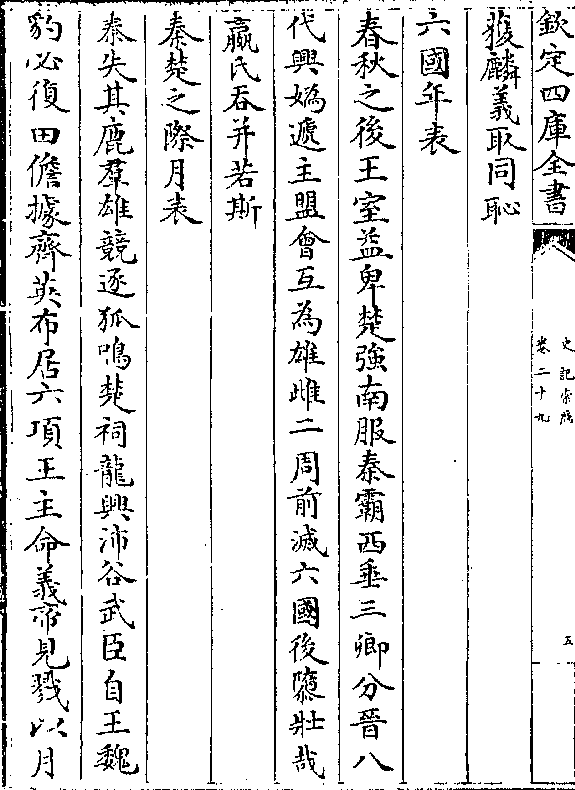 欽定四庫全書
史記索隱
卷二十九
五
獲麟義取同恥
六國年表
春秋之後王室益卑楚強南服秦霸西垂三卿分晉八
代興媯遞主盟會互為雄雌二周前滅六國後隳壯哉
嬴氏吞并若斯
秦楚之際月表
秦失其鹿羣雄競逐狐鳴楚祠龍興沛谷武臣自王魏
豹必復田儋據齊英布居六項王主命義帝見戮以月